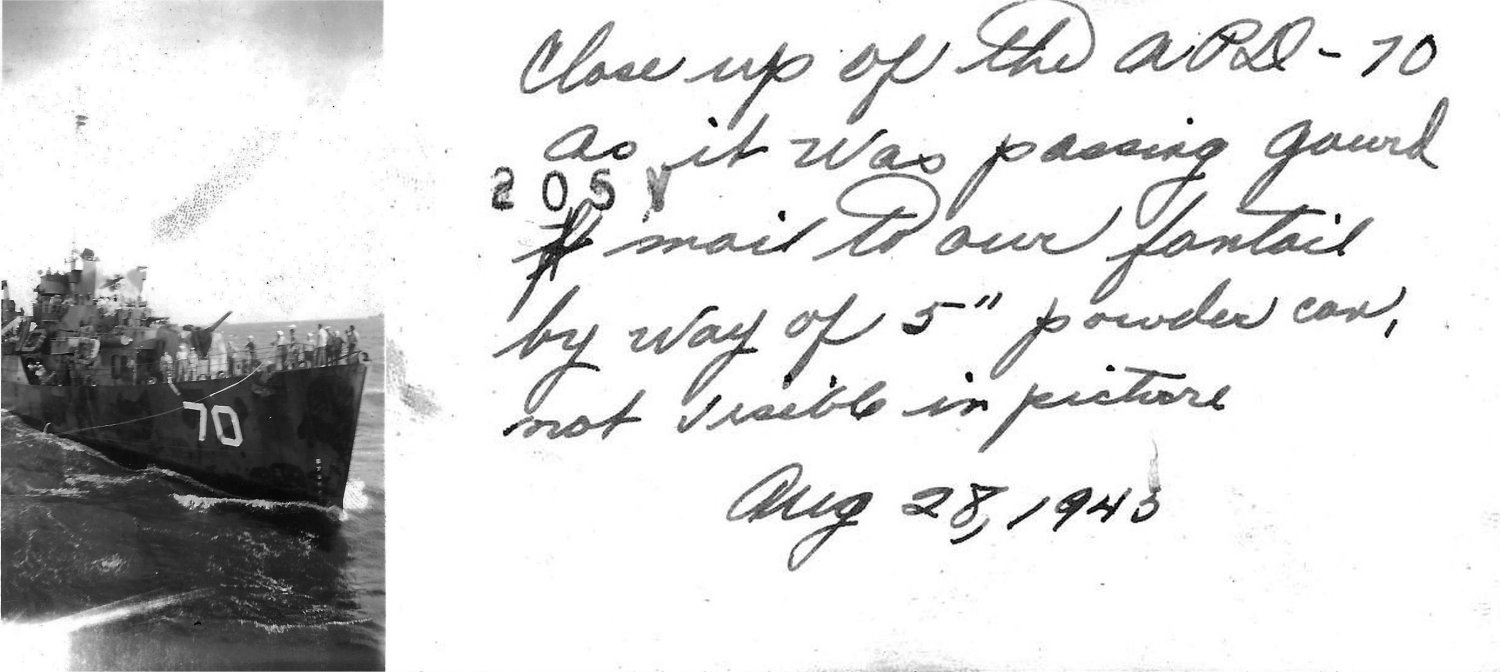 70
Close up of the APD-70
as it was passing gourd
205
mail to our fantail
by way of 5" powder can,
not visible in picture
Aug 28, 1945